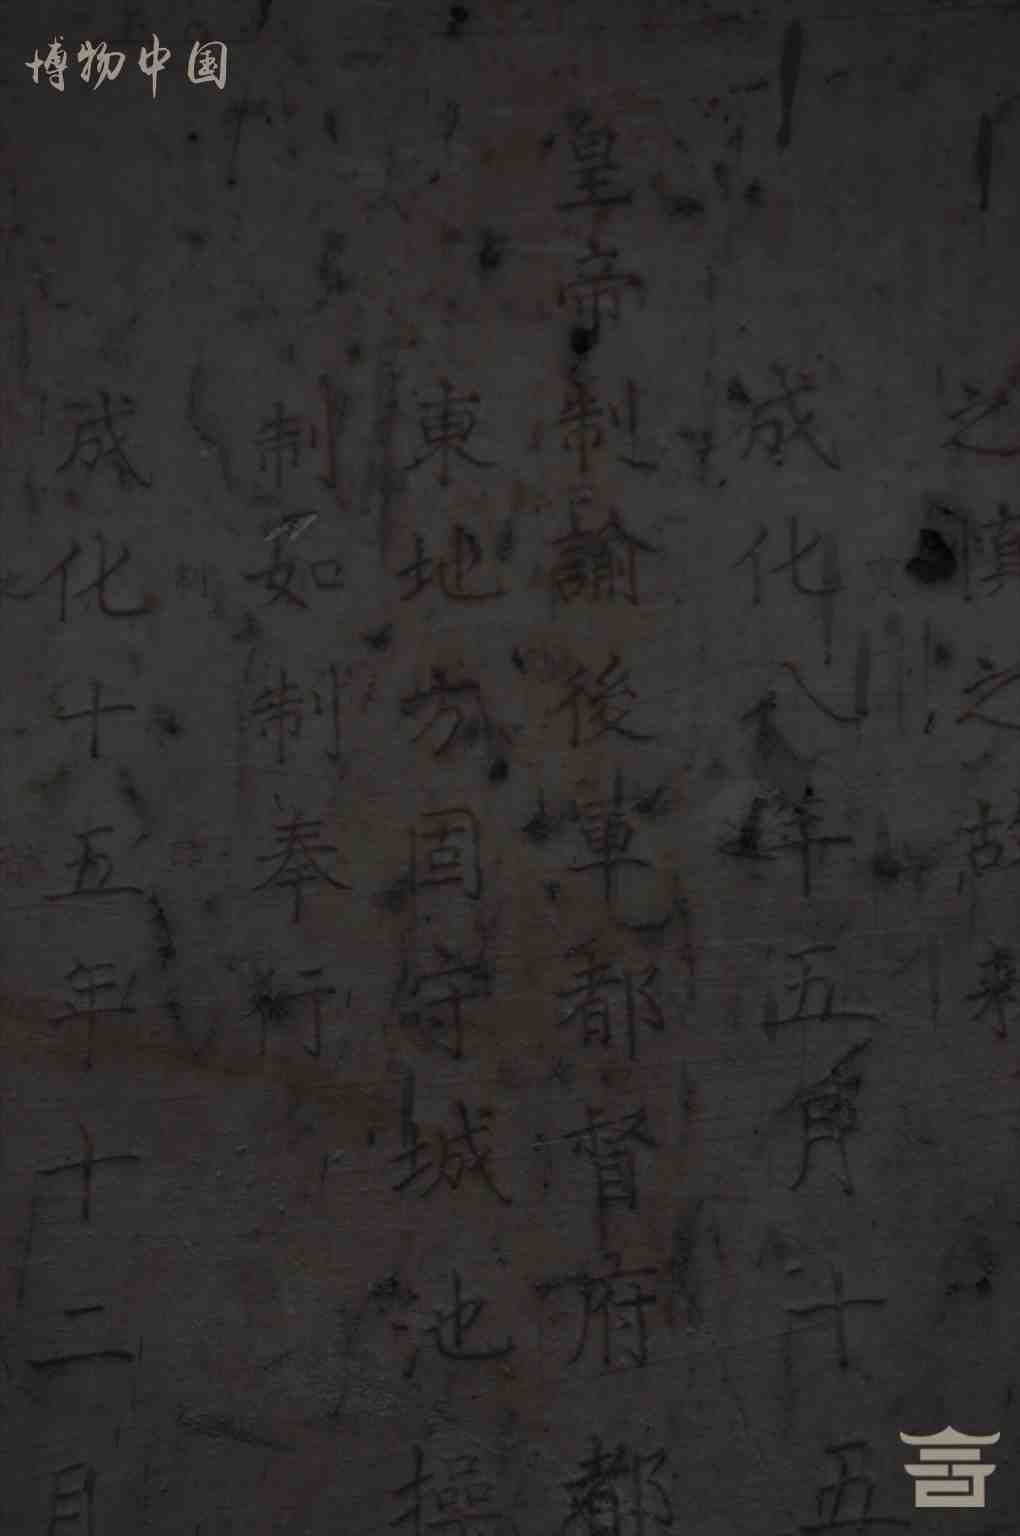 博物中国
之慎之故
成化八年五月十五
皇帝制諭後軍都督府都
東地方固守城池操
制如制奉行
成化十五年十二月